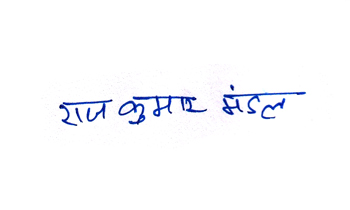 राज कुमार मंडल